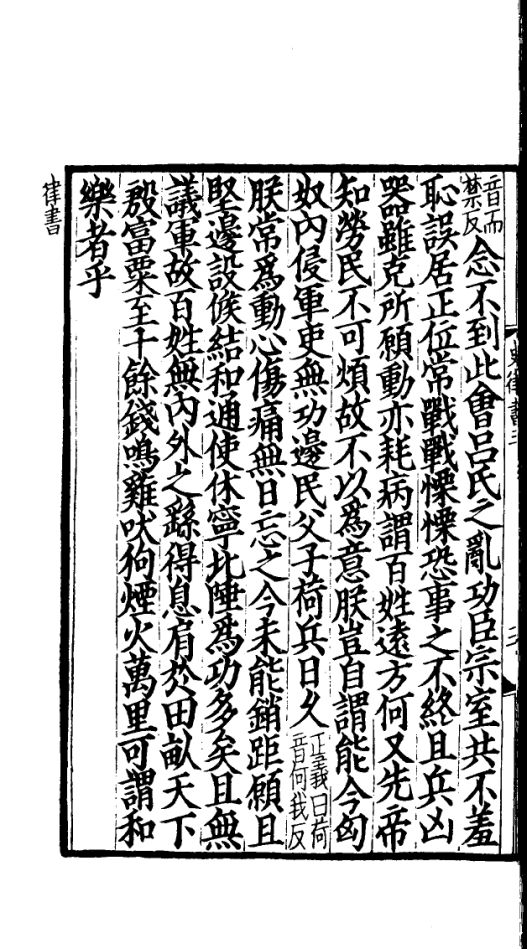 音而禁反念不到此會呂氏之亂功臣宗室共不羞
恥誤居正位常戰戰慄慄恐事之不終且兵凶
器雖克所願動亦耗病謂百姓遠方何又先帝
知勞民不可煩故不以爲意朕豈自謂能今匈
奴內侵軍吏無功邊民父子荷兵日久正義曰荷音何我反
朕常爲動心傷痛無日忘之今未能銷距願且
堅邊設候結和通使休寧北陲爲功多矣且無
議軍故百姓無內外之繇得息肩於田畝天下
殷富粟至十餘錢鳴雞吠狗煙火萬里可謂和
樂者乎
律書